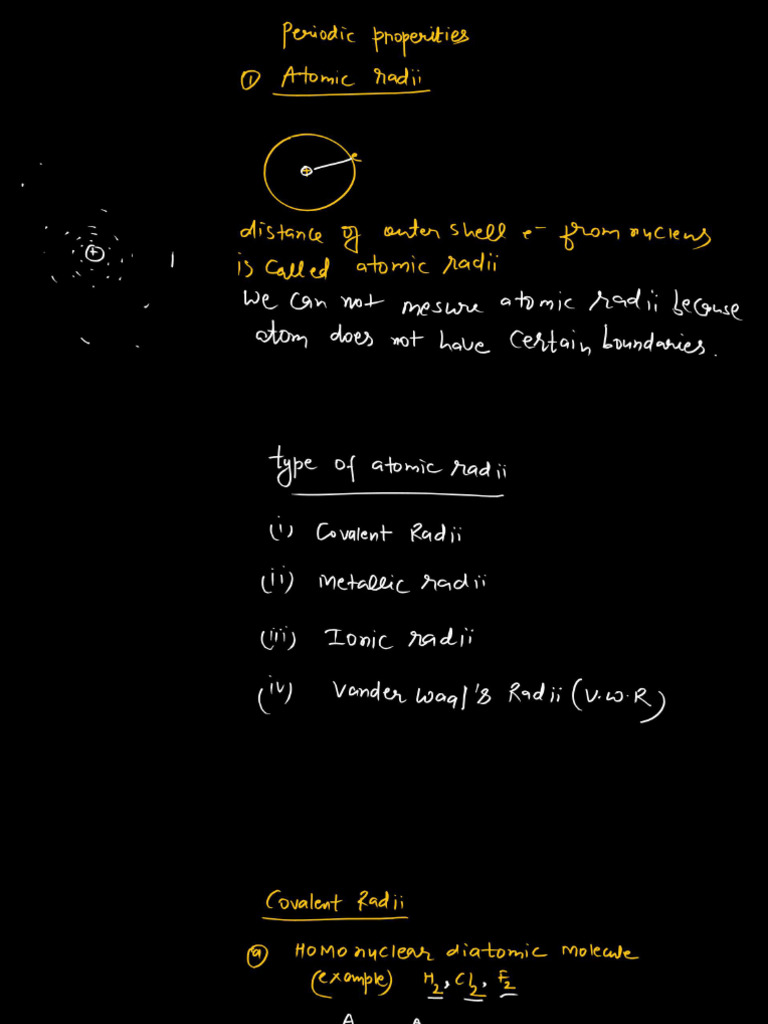 Periodic properities
① Atomic radii
e
+
distance of outer shell e⁻ from nucleus
is called atomic radii
+
We can not mesure atomic radii because
atom does not have certain boundaries.
type of atomic radii
(i) Covalent Radii
(ii) Metallic radii
(iii) Ionic radii
(iv) Vander Waal's Radii (V.W.R)
Covalent Radii
ⓐ Homonuclear diatomic molecule
(example) H₂, Cl₂, F₂
A A